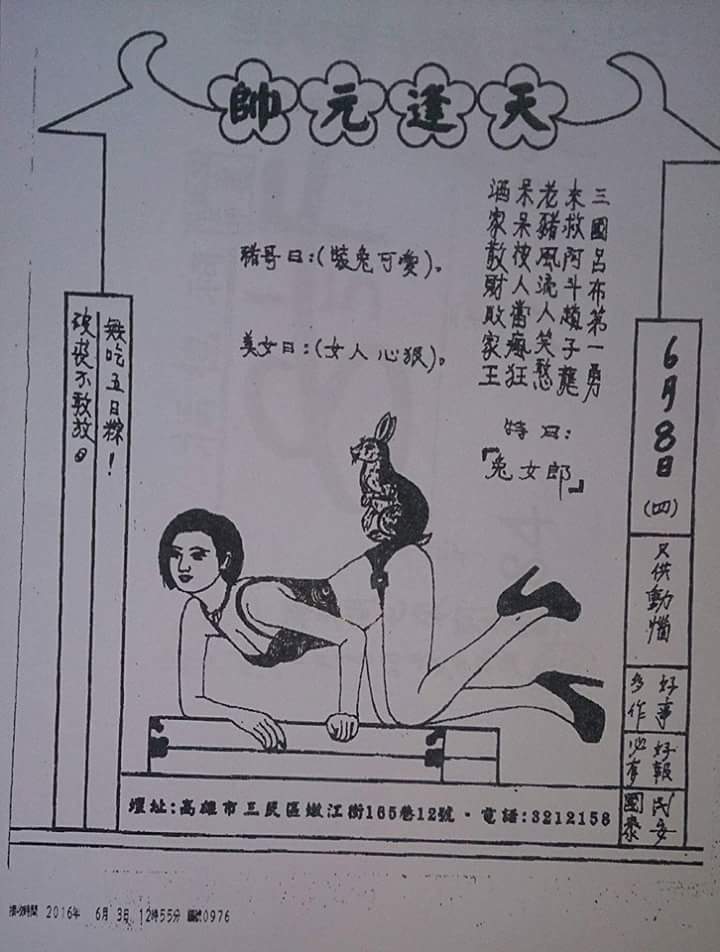 天逢元帥
三國呂布第一勇
來救阿斗趙子龍
老豬風流人笑憨
呆呆被人當瘋狂
酒家散財敗家王
特曰：
『兔女郎』
豬哥曰：（裝兔可愛）。
美女曰：（女人心狠）。
6月8日
（四）
只供動惱
好事
多作
好報
必有
民安
國泰
無吃五日粽！
破裘不敢放。
壇址：高雄市三民區嫩江街165巷12號・電話：3212158
2016年 6月 3日 12時55分 0976